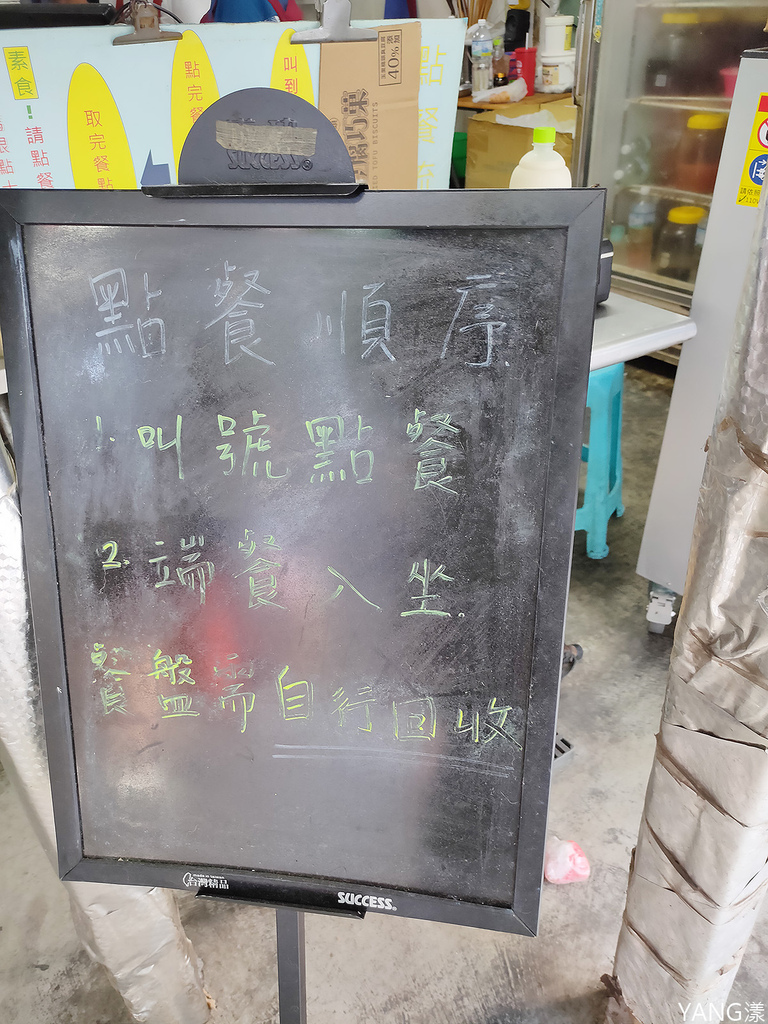 素食!
請點餐
取完餐點
點完餐
叫到
40%
點餐
SUCCESS®
點餐順序
1.叫號點餐
2.端餐入坐。
餐盤需自行回收
MADE IN TAIWAN
台灣精品
SUCCESS®
110V
YANG漾